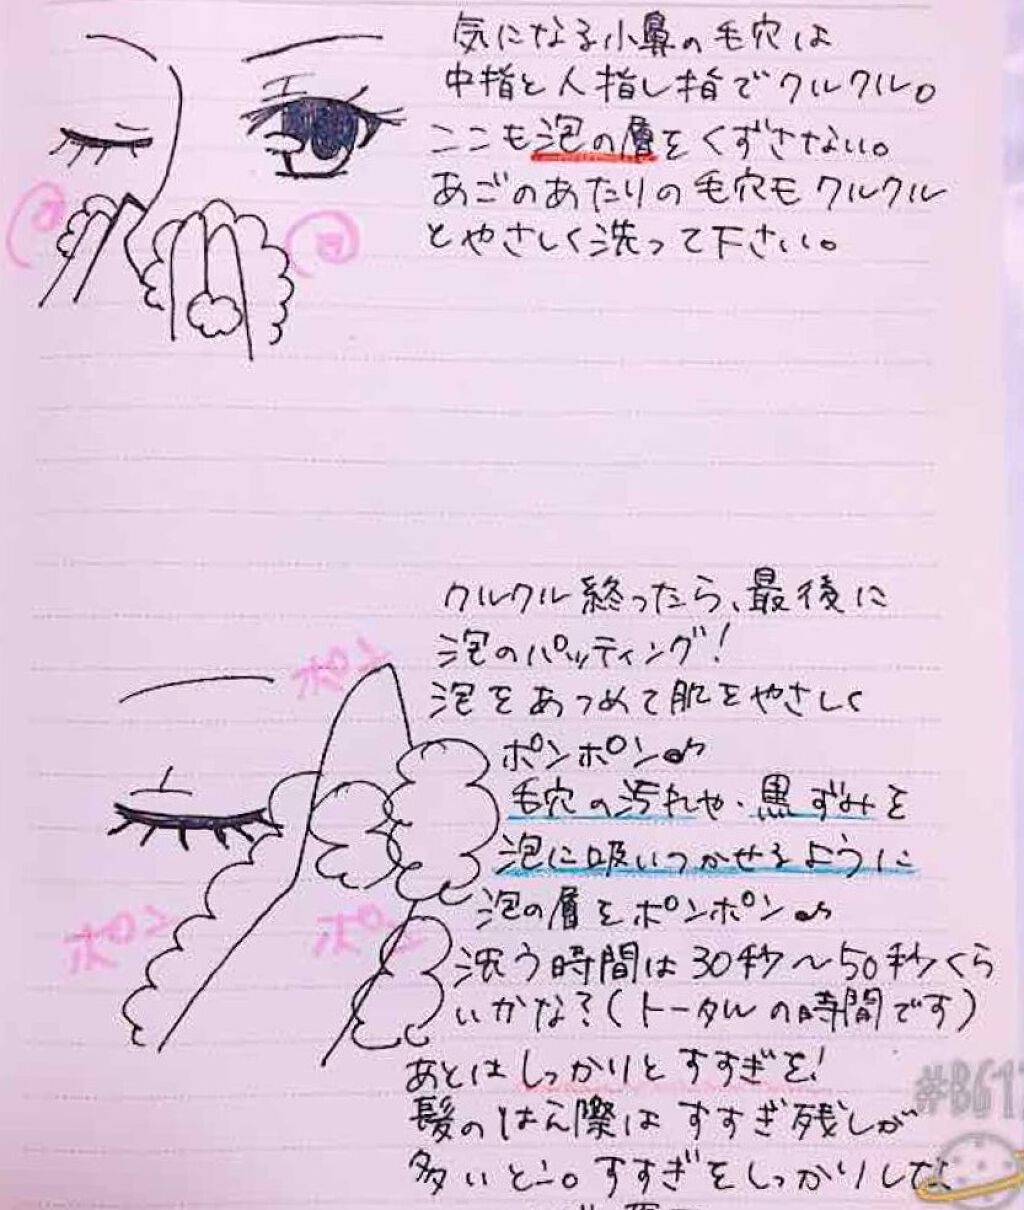 気になる小鼻の毛穴は
中指と人指し指でクルクル。
ここも泡の層をくずさない。
あごのあたりの毛穴もクルクル
とやさしく洗って下さい。
クルクル終ったら、最後に
泡のパッティング!
ポン
泡をあつめて肌をやさしく
ポンポン♪
毛穴の汚れや・黒ずみを
泡に吸いつかせるように
泡の層をポンポン♪
ポン ポン
洗う時間は30秒〜50秒くら
いかな?(トータルの時間です)
あとはしっかりとすすぎを!
#B612
髪のはえ際はすすぎ残しが
多いとこ。すすぎをしっかりしな